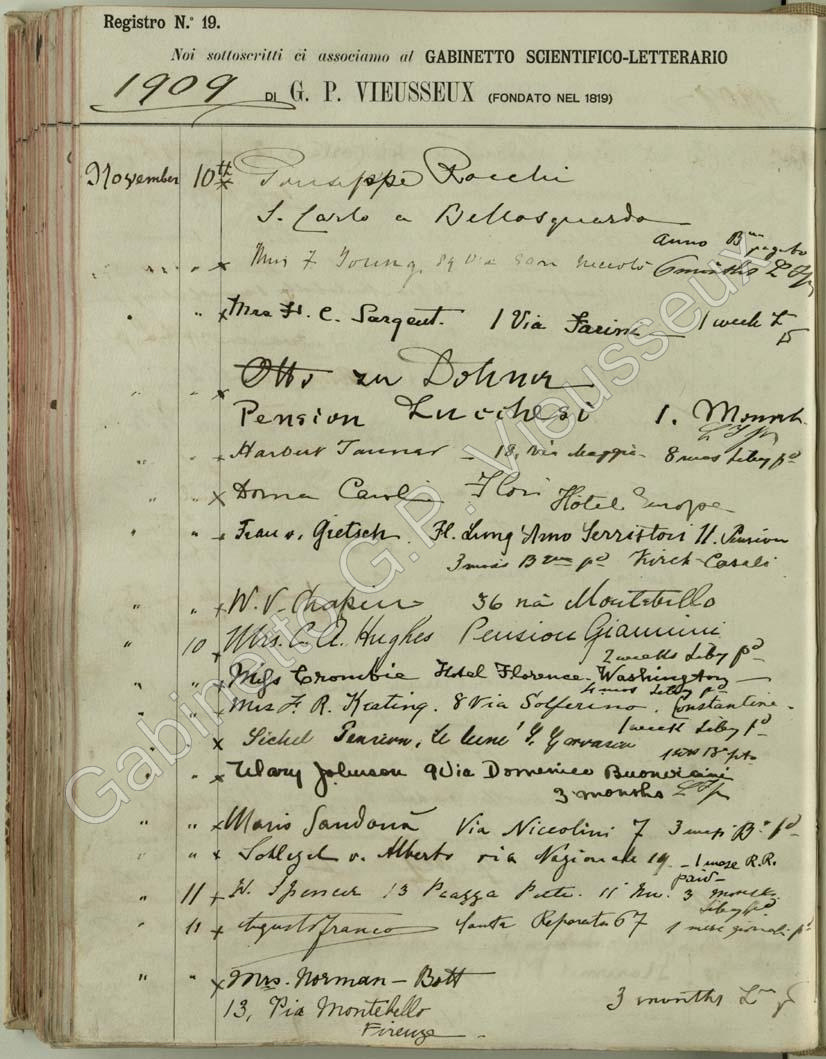 Registro N.º 19.
Noi sottoscritti ci associamo al GABINETTO SCIENTIFICO-LETTERARIO
1909 DI G. P. VIEUSSEUX (FONDATO NEL 1819)
November 10th x Giuseppe Rocchi
S. Carlo a Bellosguardo
anno pagato
" " x Miss F. Young, 89 Via San Niccolò 6 months
" " x Mrs H. C. Sargent. 1 Via Farini 1 week
" " x Otto zu Dohna
Pension Lucchesi 1. Month
" " x Tanner 18, Via Maggio 8 mos Liby pd
" " x Donna Hotel Europe
" " x Frau v. Gietsch. Lung'Arno Serristori 11. Pension
3 mois pd Casali
" " x W. V. Chapin 36 Via Montebello
" 10 x Mrs. C. A. Hughes Pension Giannini
2 weeks Liby pd
" " x Miss Crombie Hotel Florence-Washington
4 mos Liby pd
" " x Mrs F. R. Keating. 8 Via Solferino. Constantine
1 week Liby pd
" " x Sichel Pension,
" " x Mary Johnson 9 Via Domenico
3 months
" " x Mario Sandonà Via Niccolini 7 3 mesi pd
" " x Schlegel v. Alberto via Nazionale 19 - 1 mese R.R.
paid
" 11 x Spencer 13 Piazza 3 months
Liby pd
" 11 x Augusto Franco Santa Reparata 67 1 mese giornali pd
" " x Mrs. Norman - Bott
13, Via Montebello 3 months
Firenze
Gabinetto G.P. Vieusseux